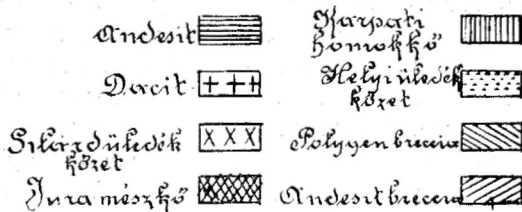 Andesit
Dacit
Szilárd üledék
kőzet
Jura mészkő
Kárpáti
homokkő
Helyi üledék
kőzet
Polygen breccia
Andesitbreccia